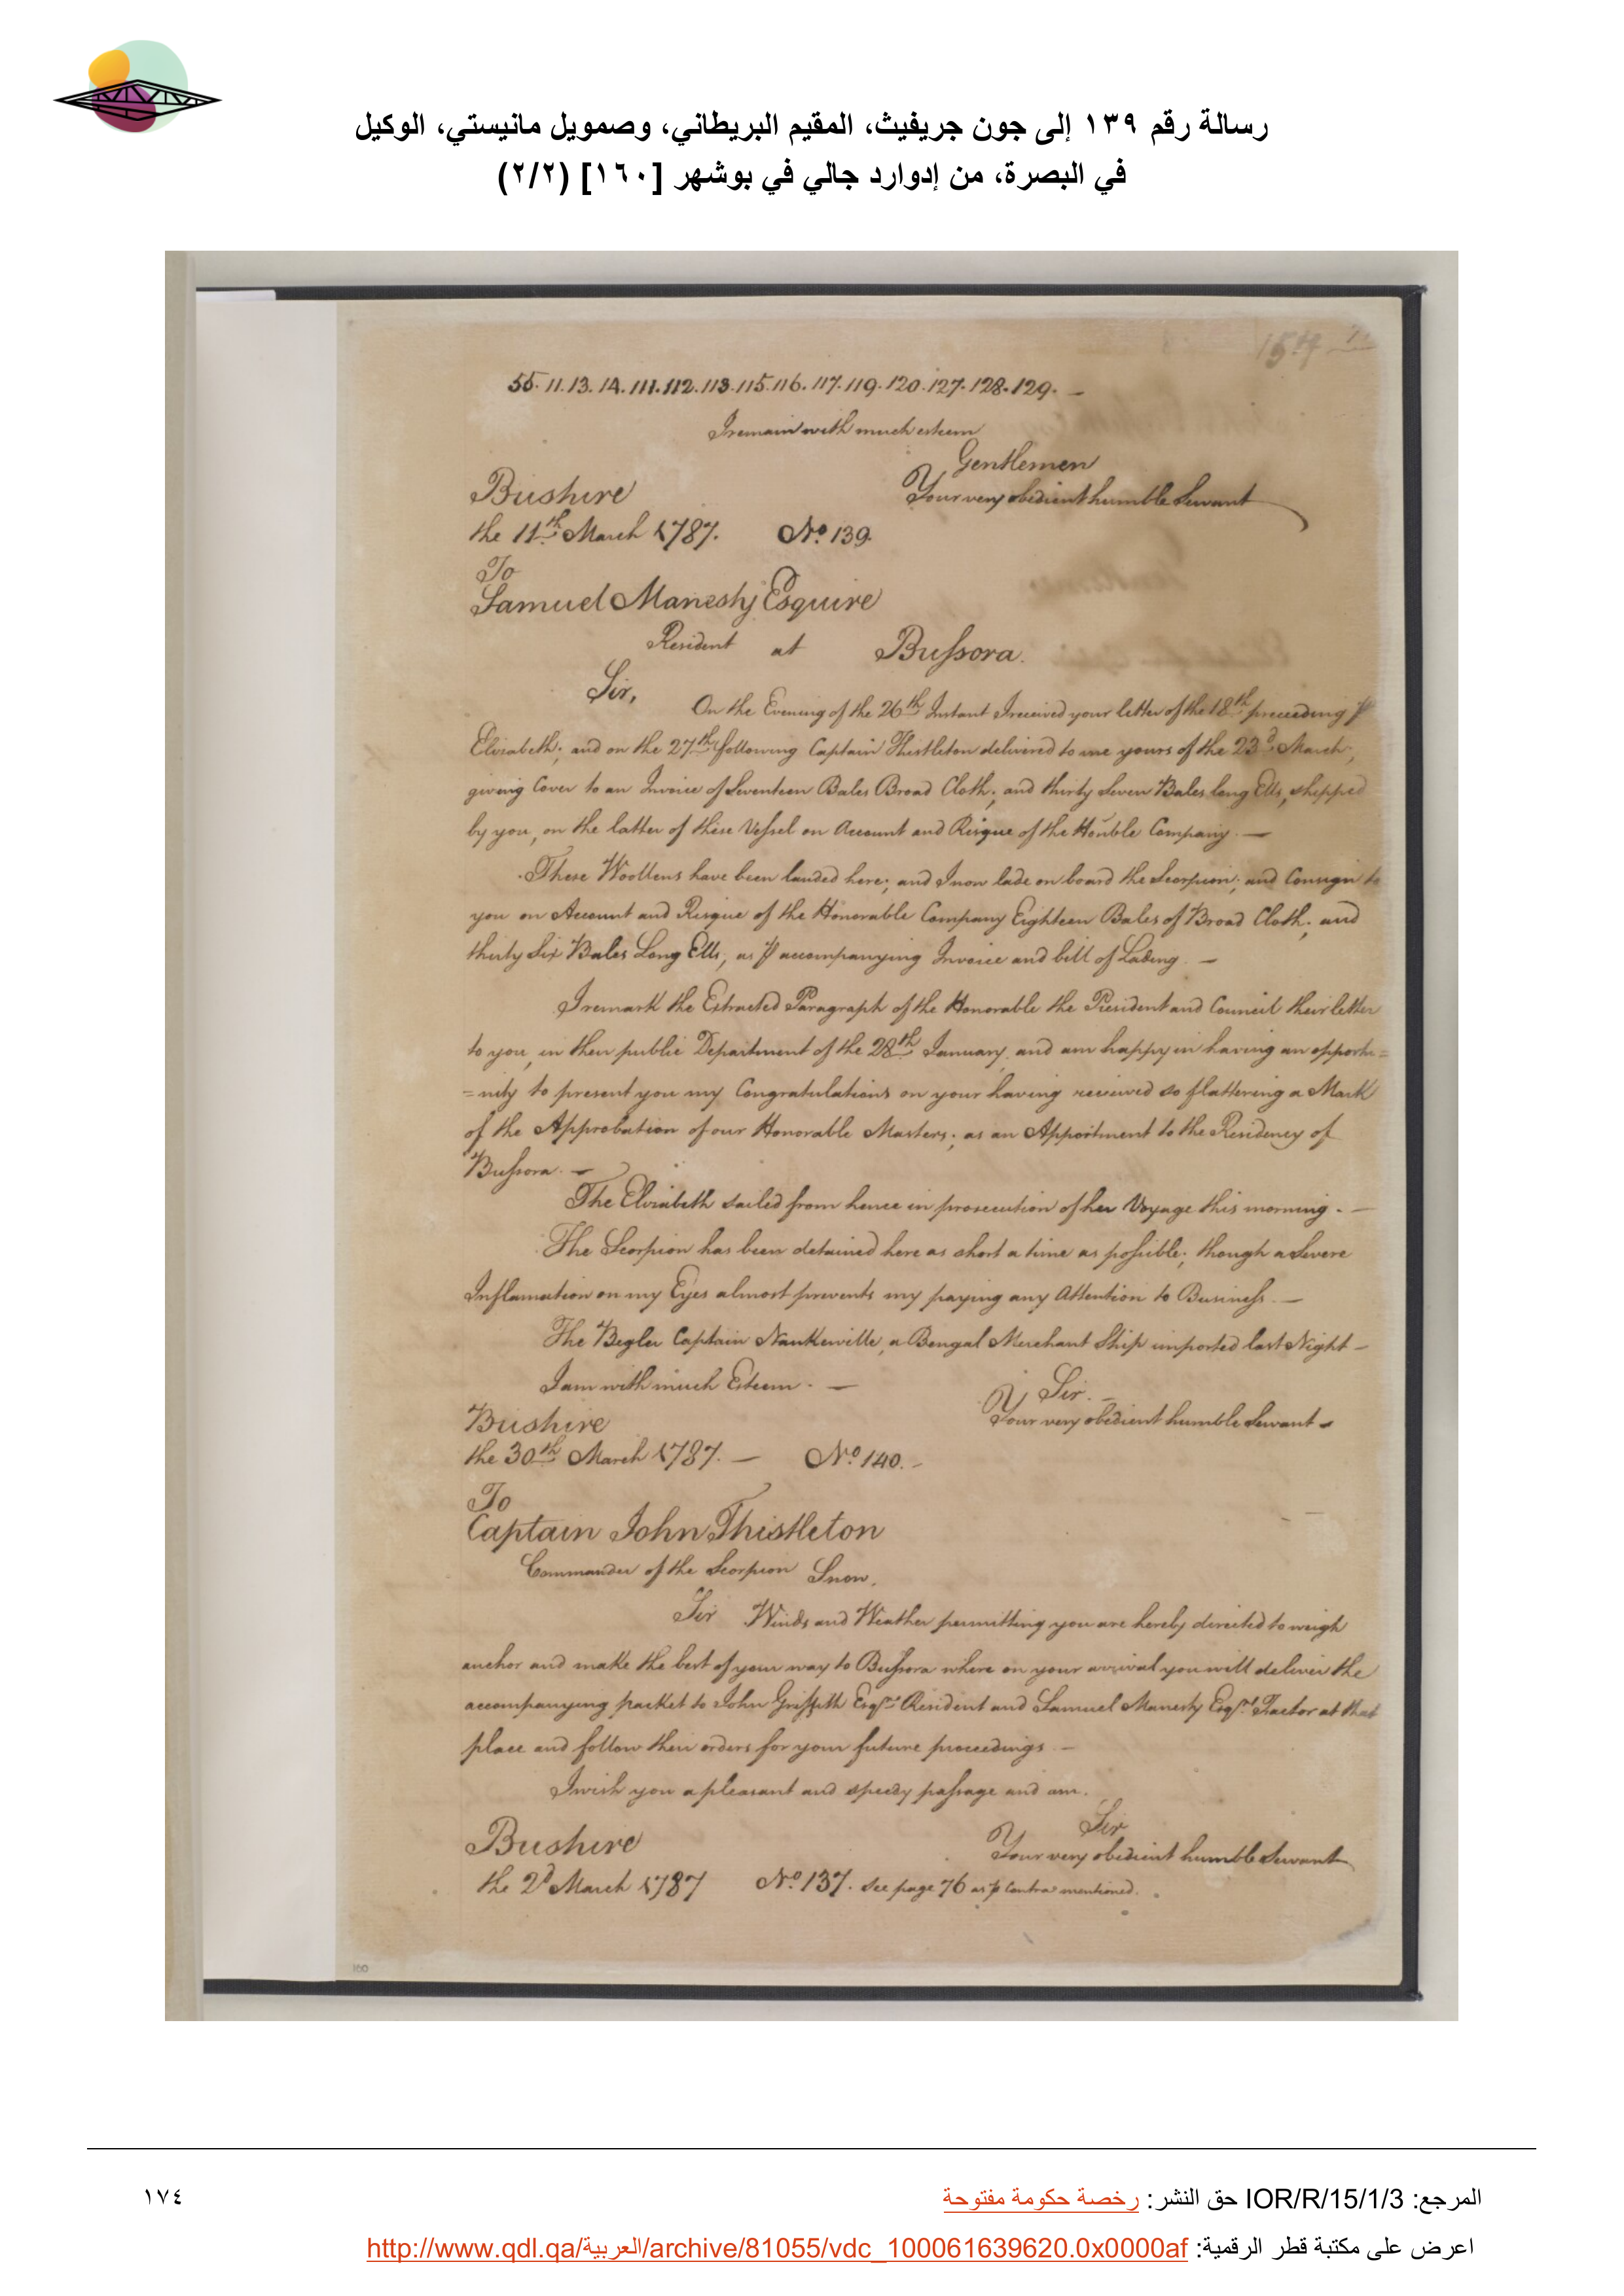 رسالة رقم ١٣٩ إلى جون جريفيث، المقيم البريطاني، وصمويل مانيستي، الوكيل
في البصرة، من إدوارد جالي في بوشهر [١٦٠] (٢/٢)
55. 11. 13. 14. 111. 112. 113. 115. 116. 117. 119. 120. 127. 128. 129. —
I remain with much esteem
Gentlemen
Bushire Your very obedient humble Servant
the 11th March 1787. No. 139.
To
Samuel Manesty Esquire
Resident at Bussora.
Sir, On the Evening of the 26th Instant I received your letter of the 18th preceeding ⅌
Elizabeth; and on the 27th following Captain Thistleton delivered to me yours of the 23d. March,
giving Cover to an Invoice of Seventeen Bales Broad Cloth; and thirty Seven Bales long Ells, shipped
by you, on the latter of these Vessel on Account and Risque of the Honble Company. —
These Woollens have been landed here; and I now lade on board the Scorpion; and Consign to
you on Account and Risque of the Honorable Company Eighteen Bales of Broad Cloth; and
thirty Six Bales Long Ells, as ⅌ accompanying Invoice and bill of Lading. —
I remark the Extracted Paragraph of the Honorable the President and Council their letter
to you, in their public Department of the 28th January, and am happy in having an opportu=
=nity to present you my Congratulations on your having received so flattering a Mark
of the Approbation of our Honorable Masters; as an Appointment to the Residency of
Bussora. —
The Elizabeth sailed from hence in prosecution of her Voyage this morning. —
The Scorpion has been detained here as short a time as possible; though a Severe
Inflamation on my Eyes almost prevents my paying any Attention to Business. —
The Begler Captain Nankeville, a Bengal Merchant Ship imported last Night —
I am with much Esteem. — Sir. —
Bushire Your very obedient humble Servant —
the 30th March 1787. — No. 140. —
To
Captain John Thistleton
Commander of the Scorpion Snow.
Sir Winds and Weather permitting you are hereby directed to weigh
anchor and make the best of your way to Bussora where on your arrival you will deliver the
accompanying packet to John Griffith Esqr. Resident and Samuel Manesty Esqr. Factor at that
place and follow their orders for your future proceedings —
I wish you a pleasant and speedy passage and am.
Sir
Bushire Your very obedient humble Servant
the 2d March 1787 No. 137. See page 76 as ⅌ Contra mentioned.
160
المرجع: IOR/R/15/1/3 حق النشر: رخصة حكومة مفتوحة
١٧٤
اعرض على مكتبة قطر الرقمية: http://www.qdl.qa/العربية/archive/81055/vdc_100061639620.0x0000af